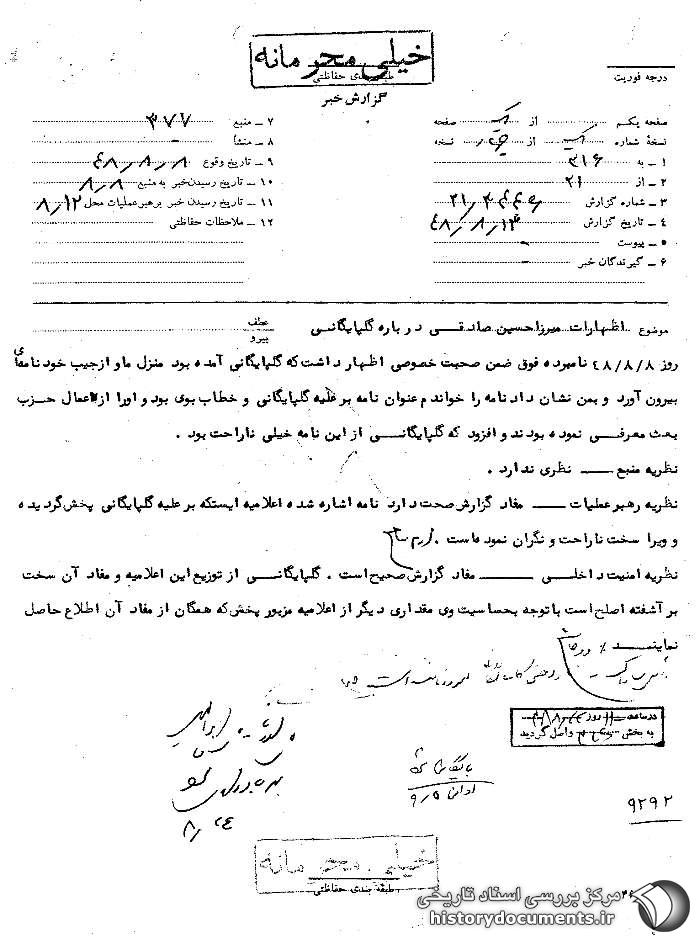 خیلی محرمانه
طبقه‌بندی حفاظتی
گزارش خبر
درجه فوریت
صفحه یکم از یک صفحه
نسخهٔ شماره یک از نسخه
۱ ـ به ۳۱۶
۲ ـ از ۲۱
۳ ـ شماره گزارش
۴ ـ تاریخ گزارش ۴۸/۸/۱۴
۵ ـ پیوست -
۶ ـ گیرندگان خبر
۷ ـ منبع ۳۷۷
۸ ـ منشأ -
۹ ـ تاریخ وقوع ۴۸/۸/۸
۱۰ ـ تاریخ رسیدن خبر به منبع ۸/۸
۱۱ ـ تاریخ رسیدن خبر برهبر عملیات محل ۸/۱۲
۱۲ ـ ملاحظات حفاظتی
موضوع اظهارات میرزاحسین صادقی درباره گلپایگانی
عطف
پیرو
روز ۴۸/۸/۸ نامبرده فوق ضمن صحبت خصوصی اظهار داشت که گلپایگانی آمده بود منزل ما و از جیب خود نامه‌ای
بیرون آورد و بمن نشان داد نامه را خواندم عنوان نامه بر علیه گلپایگانی و خطاب بوی بود و او را از عمال حزب
بعث معرفی نموده بودند و افزود که گلپایگانی از این نامه خیلی ناراحت بود .
نظریه منبع ـــ نظری ندارد .
نظریه رهبر عملیات ـــ مفاد گزارش صحت دارد نامه اشاره شده اعلامیه ایستکه بر علیه گلپایگانی پخش گردیده
و ویرا سخت ناراحت و نگران نموده است .
نظریه امنیت داخلی ـــ مفاد گزارش صحیح است . گلپایگانی از توزیع این اعلامیه و مفاد آن سخت
بر آشفته اصلح است با توجه بحساسیت وی مقداری دیگر از اعلامیه مزبور پخش که همگان از مفاد آن اطلاع حاصل
نمایند
در ساعت روز
به بخش واصل گردید
بایگانی شود
۹۲۹۲
۸/۲۴
خیلی محرمانه
طبقه بندی حفاظتی
مرکز بررسی اسناد تاریخی
historydocuments.ir